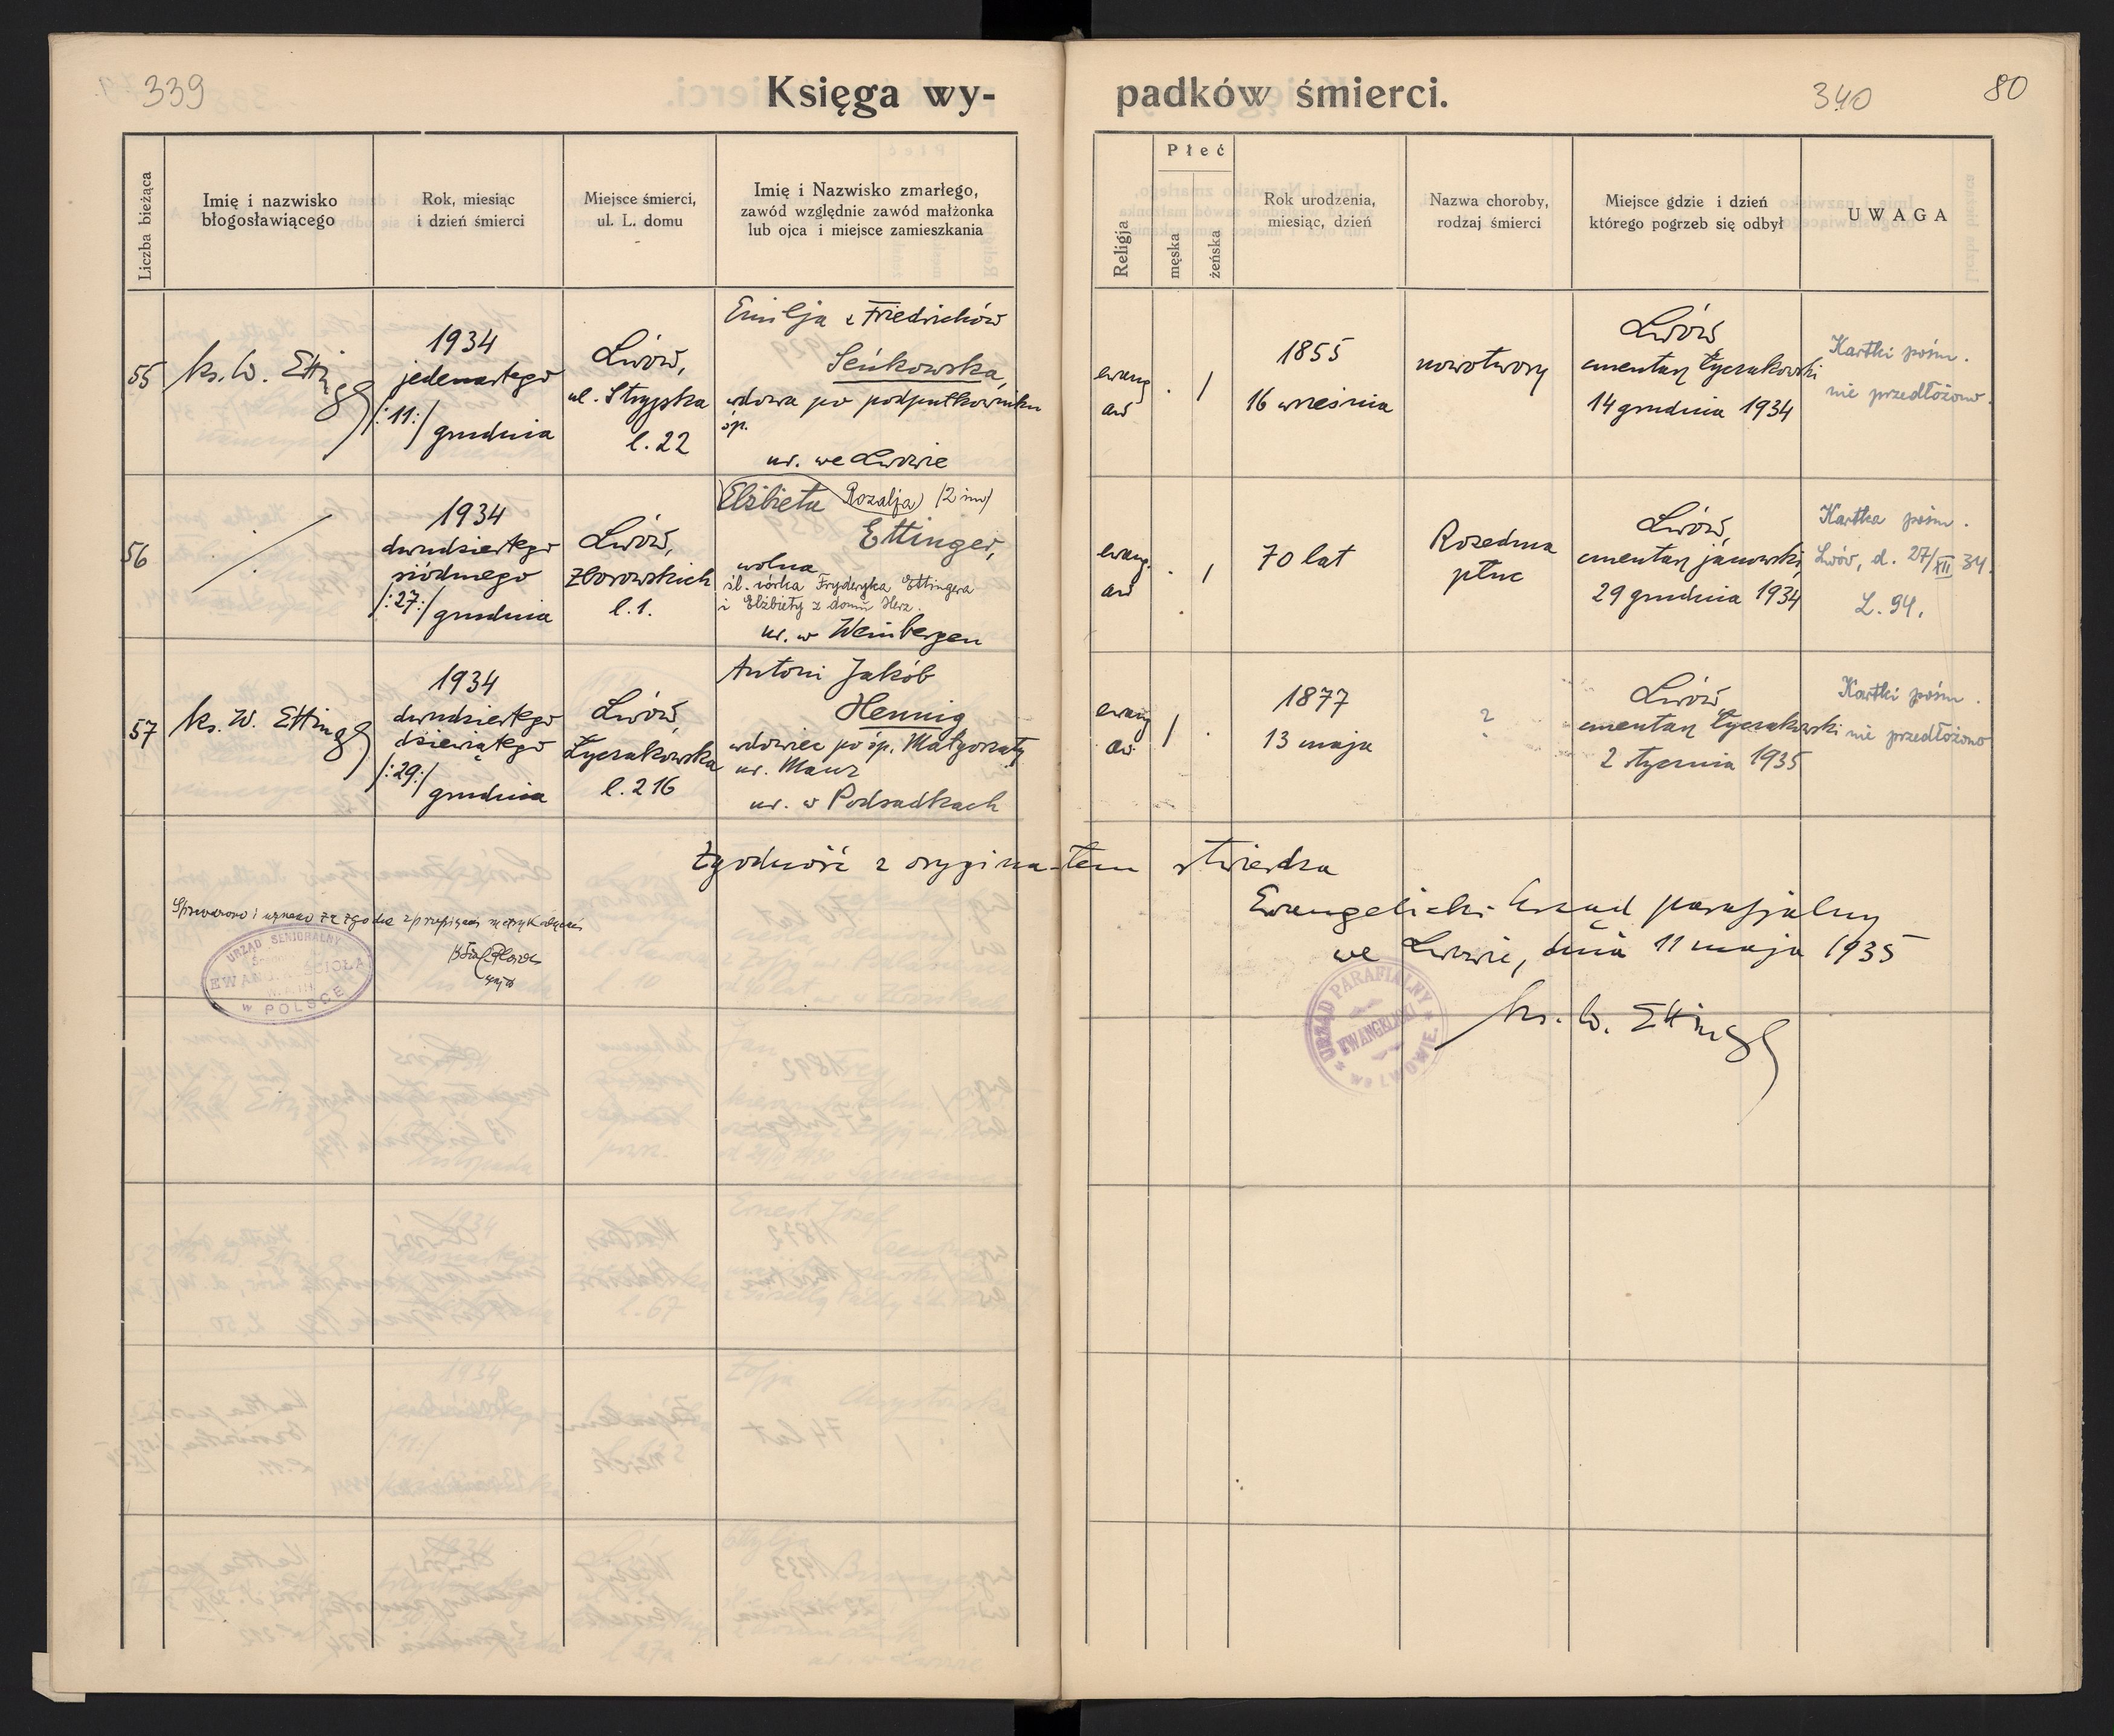 339
Księga wy-
padków śmierci.
340
80
Liczba bieżąca
Imię i nazwisko
błogosławiącego
Rok, miesiąc
i dzień śmierci
Miejsce śmierci,
ul. L. domu
Imię i Nazwisko zmarłego,
zawód względnie zawód małżonka
lub ojca i miejsce zamieszkania
Religja
Płeć
męska
żeńska
Rok urodzenia,
miesiąc, dzień
Nazwa choroby,
rodzaj śmierci
Miejsce gdzie i dzień
którego pogrzeb się odbył
UWAGA
55
ks. W. Etting
1934
jedenastego
/:11:/ grudnia
Lwów,
ul. Stryjska
l. 22
Emilja z Friedrichów
Seńkowska,
wdowa po podpułkowniku
śp.
ur. we Lwowie
ewang
aw
. /
1855
16 września
nowotwory
Lwów,
cmentarz Łyczakowski
14 grudnia 1934
Kartki pośm.
nie przedłożono.
56
1934
dwudziestego
siódmego
/:27:/ grudnia
Lwów,
Zborowskich
l. 1.
Elżbieta Rozalja) (2 im)
Ettinger,
wolna
śl. córka Fryderyka Ettingera
i Elżbiety z domu Herz.
ur. w Weinbergen
ewang.
aw
. /
70 lat
Rozedma
płuc
Lwów,
cmentarz janowski,
29 grudnia 1934
Kartka pośm.
Lwów, d. 27/XII 34.
L. 94.
57
ks. W. Etting
1934
dwudziestego
dziewiątego
/:29:/
grudnia
Lwów,
Łyczakowska
l. 216
Antoni Jakób
Hennig
wdowiec po śp. Małgorzaty
ur. Manz
ur. w Podsadkach
ewang
aw.
/ .
1877
13 maja
?
Lwów
cmentarz Łyczakowski
2 stycznia 1935
Kartki pośm.
nie przedłożono
Zgodność z oryginałem stwierdza
Ewangelicki Urząd parafjalny
we Lwowie, dnia 11 maja 1935
ks. W. Etting
URZĄD PARAFIALNY
EWANGELICKI
we LWOWIE
Sprawdzono i uznano za zgodne z przepisami
URZĄD SENIORALNY
EWANG. KOŚCIOŁA
w POLSCE